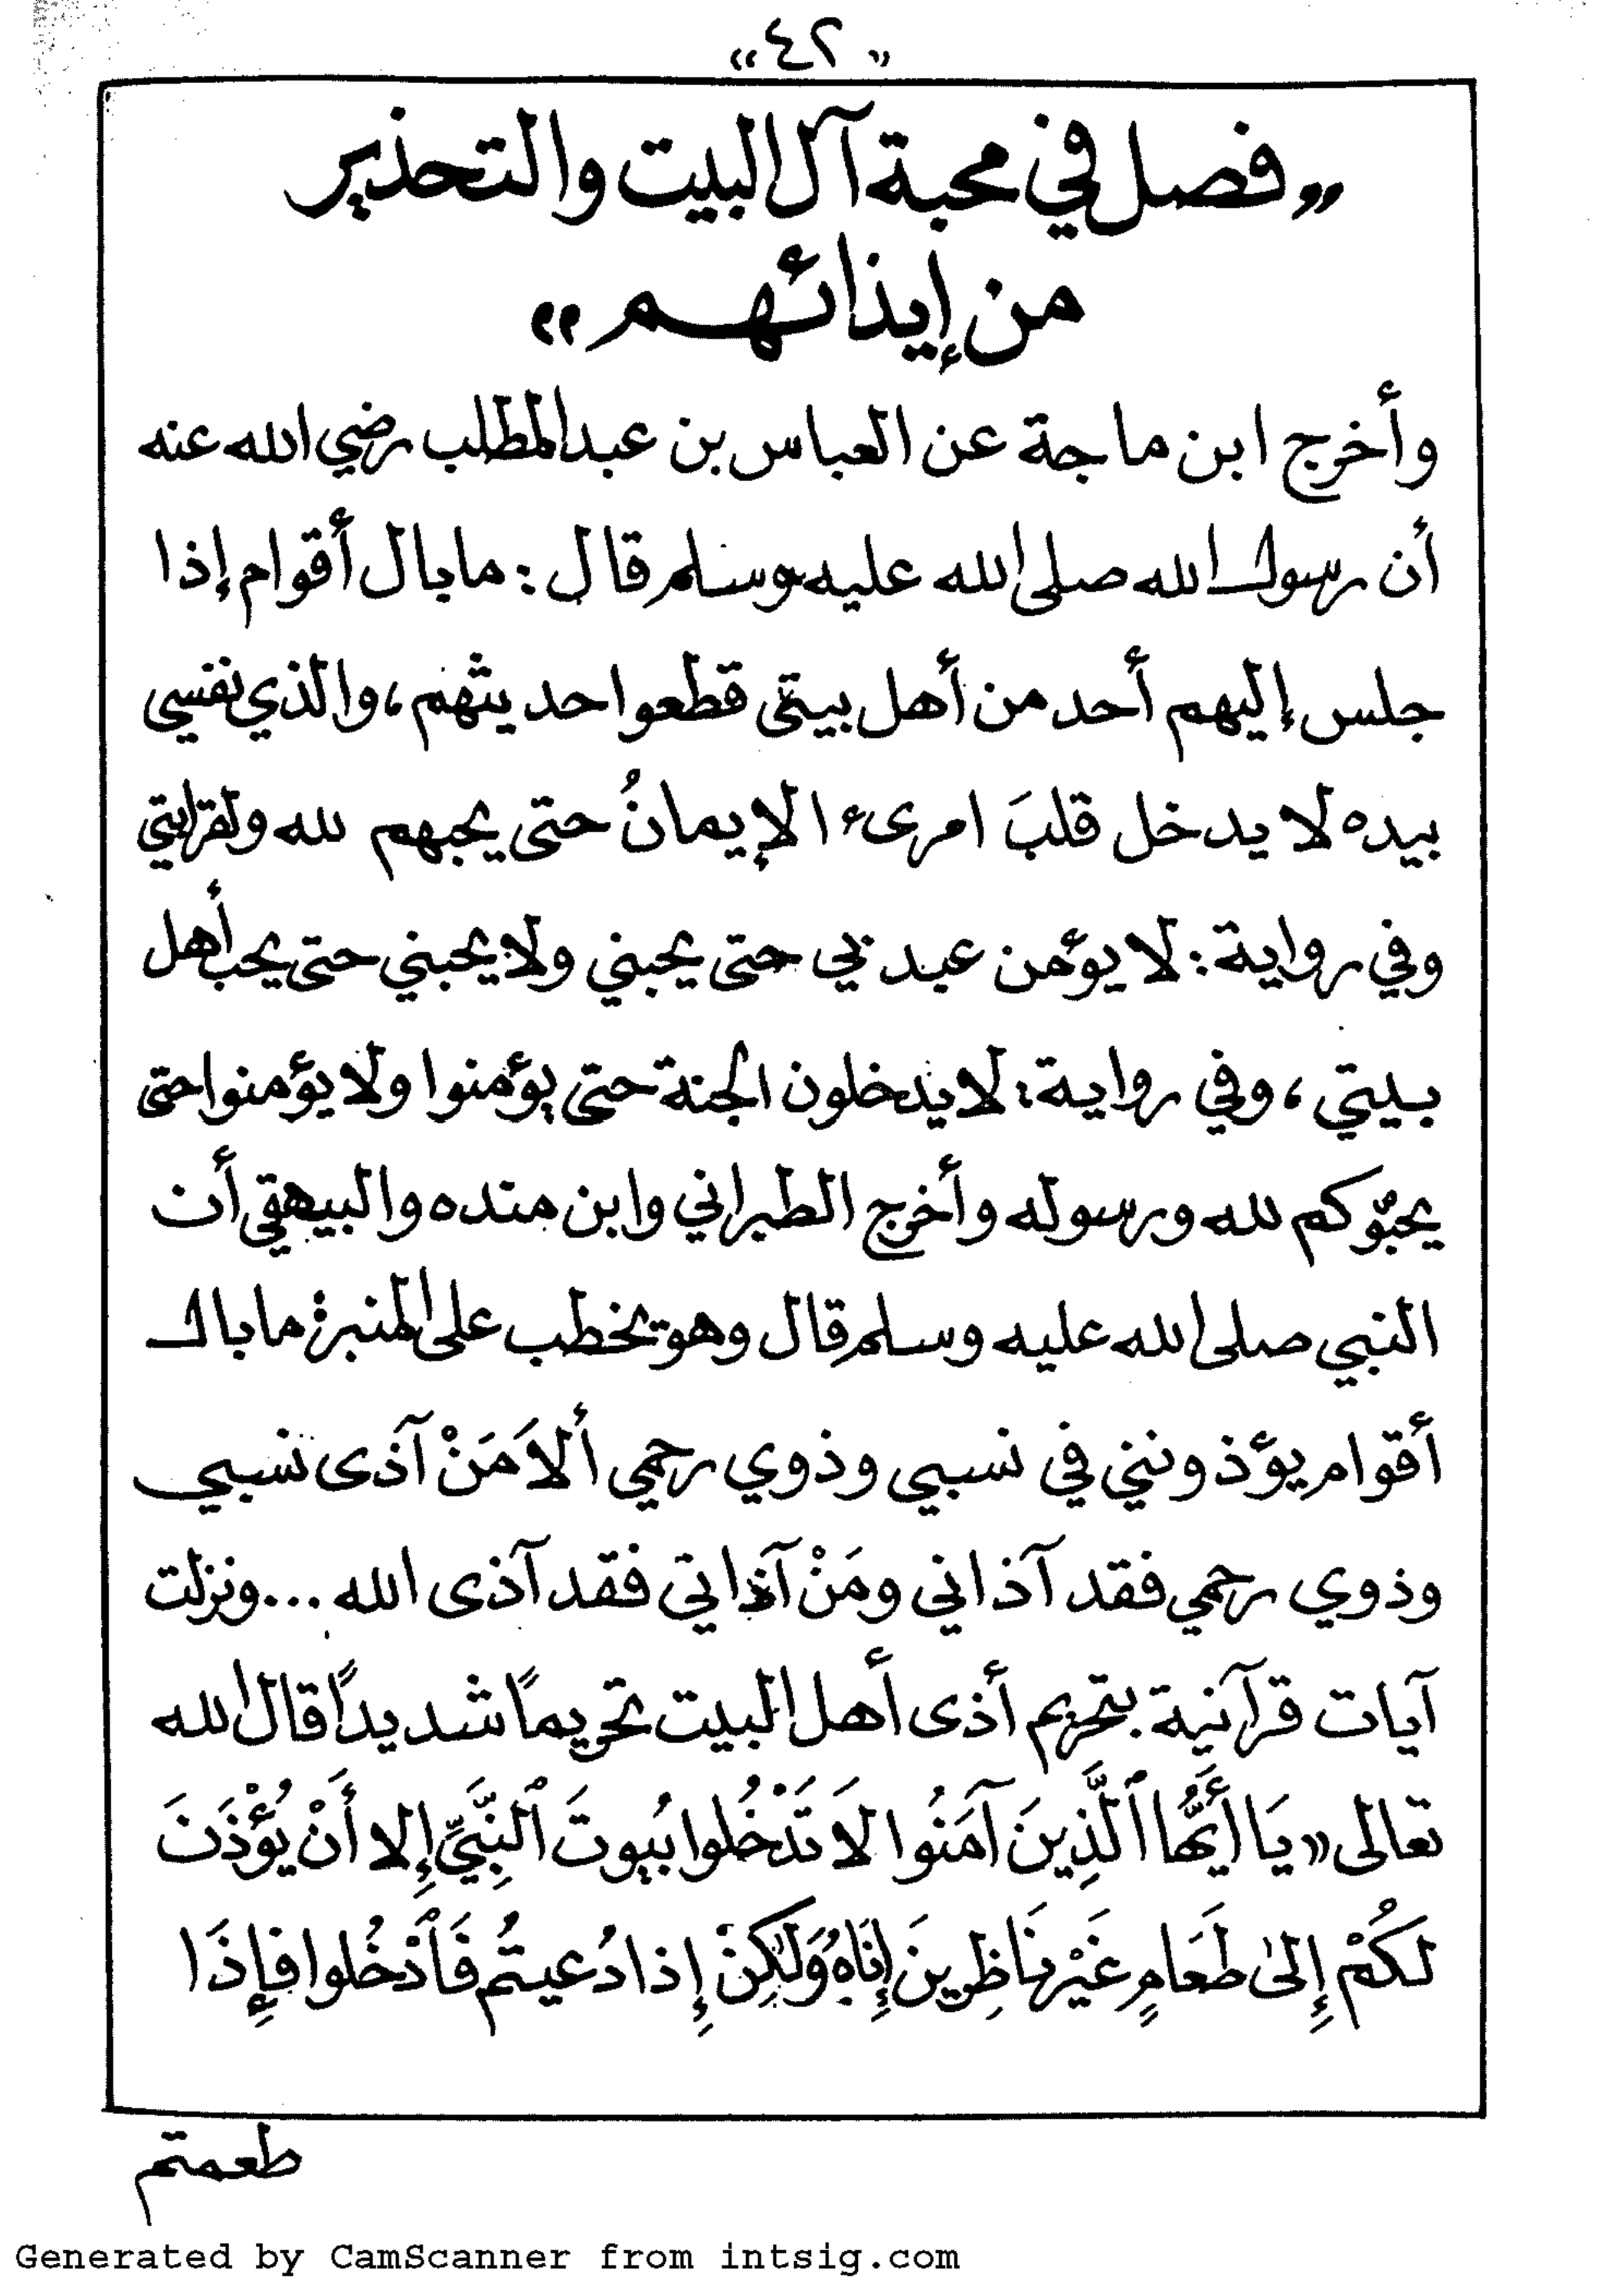 «٤٢»
«فصل في محبة آل البيت والتحذير
من إيذائهم»
وأخرج ابن ماجة عن العباس بن عبد المطلب رضي الله عنه
أن رسول الله صلى الله عليه وسلم قال : ما بال أقوام إذا
جلس إليهم أحد من أهل بيتي قطعوا حديثهم ، والذي نفسي
بيده لا يدخل قلبَ امرىء الإيمانُ حتى يحبهم لله ولقرابتي
وفي رواية : لا يؤمن عبد بي حتى يحبني ولا يحبني حتى يحب أهل
بيتي ، وفي رواية : لا يدخلون الجنة حتى يؤمنوا ولا يؤمنوا حتى
يحبّوكم لله ورسوله وأخرج الطبراني وابن منده والبيهقي أن
النبي صلى الله عليه وسلم قال وهو يخطب على المنبر : ما بال
أقوام يؤذونني في نسبي وذوي رحمي ألاَ مَنْ آذى نسبي
وذوي رحمي فقد آذاني ومَنْ آذاني فقد آذى الله ... ونزلت
آيات قرآنية بتحريم أذى أهل البيت تحريمًا شديدًا قال الله
تعالى «يَا أَيُّهَا ٱلَّذِينَ آمَنُوا لاَ تَدْخُلوا بُيوتَ ٱلنَّبِيِّ إِلا أَنْ يُؤْذَنَ
لَكُمْ إِلىٰ طَعَامٍ غَيْرَ نَاظِرِينَ إِنَاهُ وَلَٰكِنْ إِذا دُعيتُم فَٱدْخُلوا فإِذَا
طعمتم
Generated by CamScanner from intsig.com